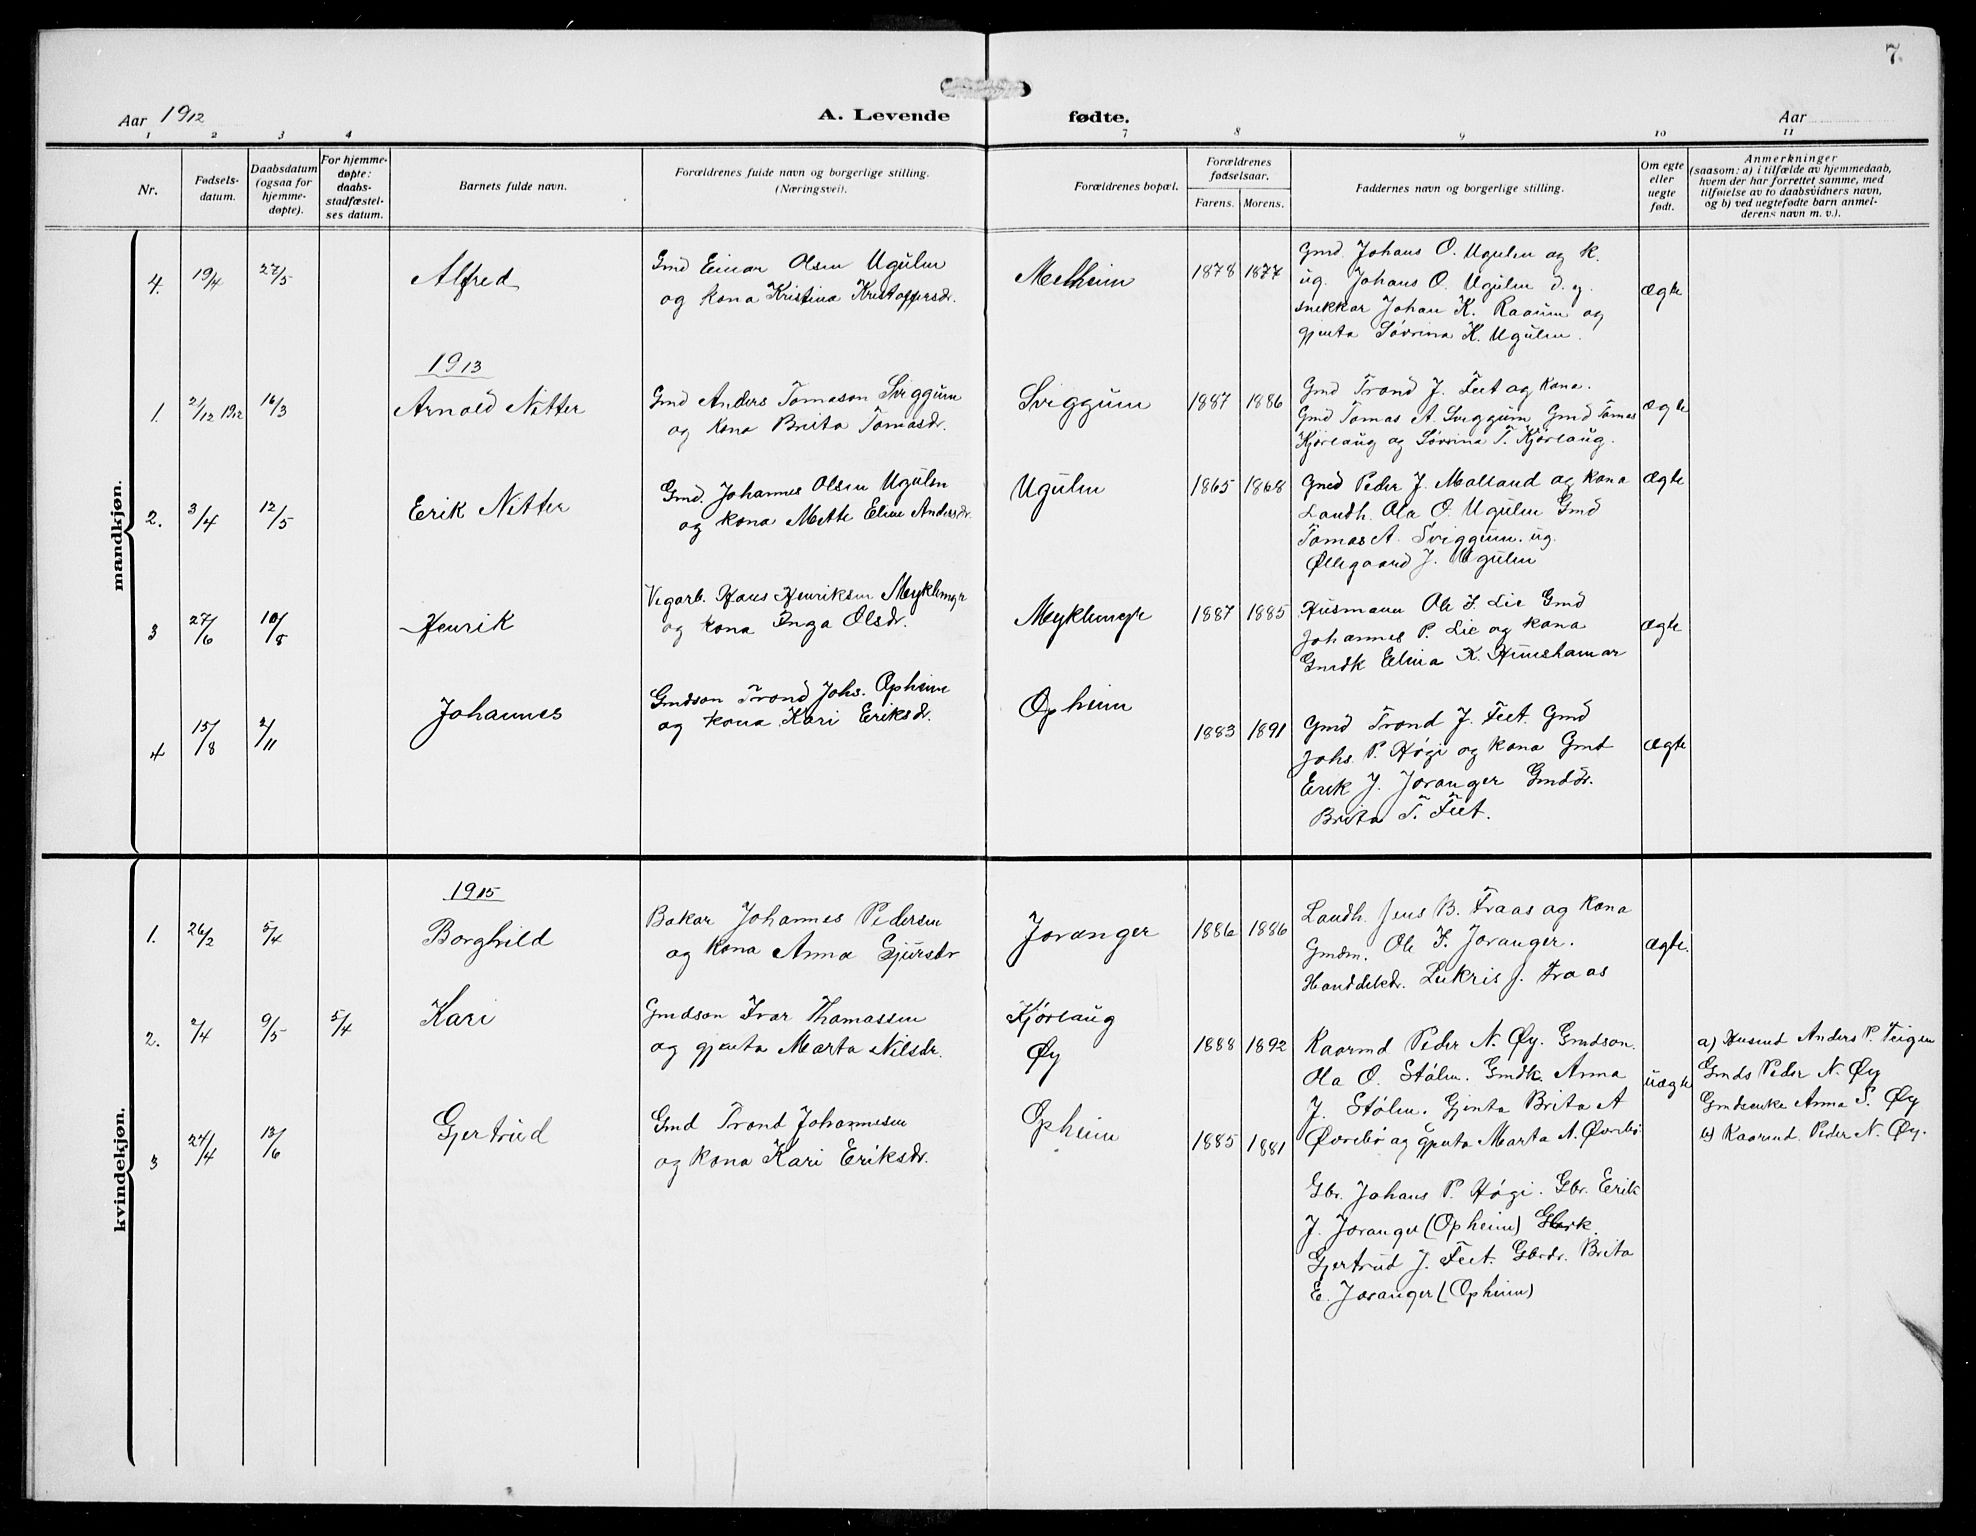 7.
Aar 1912 A. Levende fødte. Aar
1 2 3 4 7 8 9 10 11
Nr. Fødsels-datum. Daabsdatum (ogsaa for hjemme-døpte). For hjemme-døpte: daabs-stadfæstel-ses datum. Barnets fulde navn. Forældrenes fulde navn og borgerlige stilling. (Næringsvei). Forældrenes bopæl. Forældrenes fødselsaar. Farens. Morens. Faddernes navn og borgerlige stilling. Om egte eller uegte født. Anmerkninger (saasom: a) i tilfælde av hjemmedaab, hvem der har forrettet samme, med tilføielse av to daabsvidners navn, og b) ved uegtefødte barn anmel-derens navn m. v.).
mandkjøn.
4. 19/4 27/5 Alfred Gmd Einar Olsen Ugulen Melheim 1878 1877 Gmd Johans O. Ugulen og k.
og kona Kristina Kristoffersdr. ug. Johans O. Ugulen d. y. ægte
snekkar Johan K. Raaum og
gjenta Søvrina K. Ugulen.
1913
1. 21/12 1912 16/3 Arnold Nitter Gmd Anders Tomason Sviggum Sviggum 1887 1886 Gmd Trond J. Feet og kona. ægte
og kona Brita Tomasdr. Gmd Tomas A Sviggum Gmd Tomas
Kjørlaug og Søvrina T. Kjørlaug.
2. 3/4 12/5 Erik Nitter Gmd. Johannes Olsen Ugulen Ugulen 1865 1868 Gmd Peder J. Molland og kona ægte
og kona Mette Eline Andersdr. Landh. Ola O. Ugulen Gmd
Tomas A. Sviggum. ug.
Øllegaard J. Ugulen
3 27/6 10/8 Henrik Vegarb. Hans Henriksen Myklemyr Myklemyr 1887 1885 Husmann Ole J. Lie Gmd ægte
og kona Inga Olsdr. Johannes P. Lie og kona
Gmdk Elina K. Hunshamar
4 15/8 2/11 Johannes Gmdson Trond Johs. Opheim Opheim 1883 1891 Gmd Trond J. Feet. Gmd ægte
og kona Kari Eriksdr. Johs. P. Høgi og kona Gmd
Erik J. Joranger Gmddr.
Brita T. Feet.
kvindekjøn.
1915
1. 26/2 5/4 Borghild Bakar Johannes Pedersen Joranger 1886 1886 Landh. Jens B. Fraas og kona ægte.
og kona Anna Gjursdr Gmdm. Ole J. Joranger.
Handelsdr. Lukris J. Fraas
2. 2/4 9/5 5/4 Kari Gmdson Ivar Thomassen Kjørlaug
og gjenta Marta Nilsdr. Øy 1888 1892 Kaarmd Peder N. Øy. Gmdson. uægte a) Husmd Anders P. Teigen
Ola O. Stølen. Gmdk. Anna Gmds Peder N. Øy
J. Stølen. Gjenta Brita A Gmdsenke Anna S. Øy
Øvrebø og gjenta Marta A. Øvrebø b) Kaarmd. Peder N. Øy.
3 24/4 13/6 Gjertrud Gmd Trond Johannesen Opheim 1885 1881
og kona Kari Eriksdr.
Gbr. Johans P. Høgi. Gbr. Erik
J. Joranger (Opheim) Gbrk.
Gjertrud J. Feet. Gbrdr. Brita
E. Joranger (Opheim)